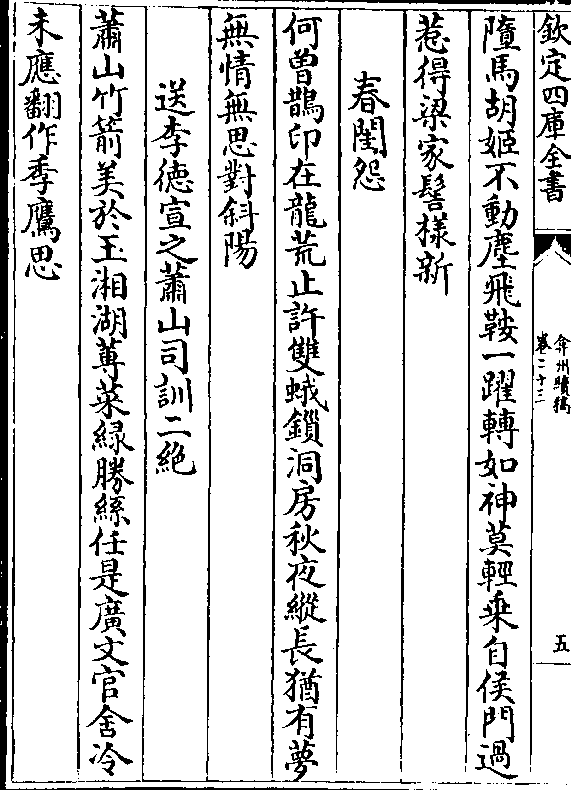 欽定四庫全書
弇州續稿
卷二十三
五
墮馬胡姬不動塵飛鞍一躍轉如神莫輕乗自侯門過
惹得梁家髻様新
春閨怨
何曽鵲印在龍荒止許雙蛾鎻洞房秋夜縱長猶有夢
無情無思對斜陽
送李德宣之蕭山司訓二絶
蕭山竹箭美於玉湘湖蓴菜緑勝絲任是廣文官舍冷
未應翻作季鷹思